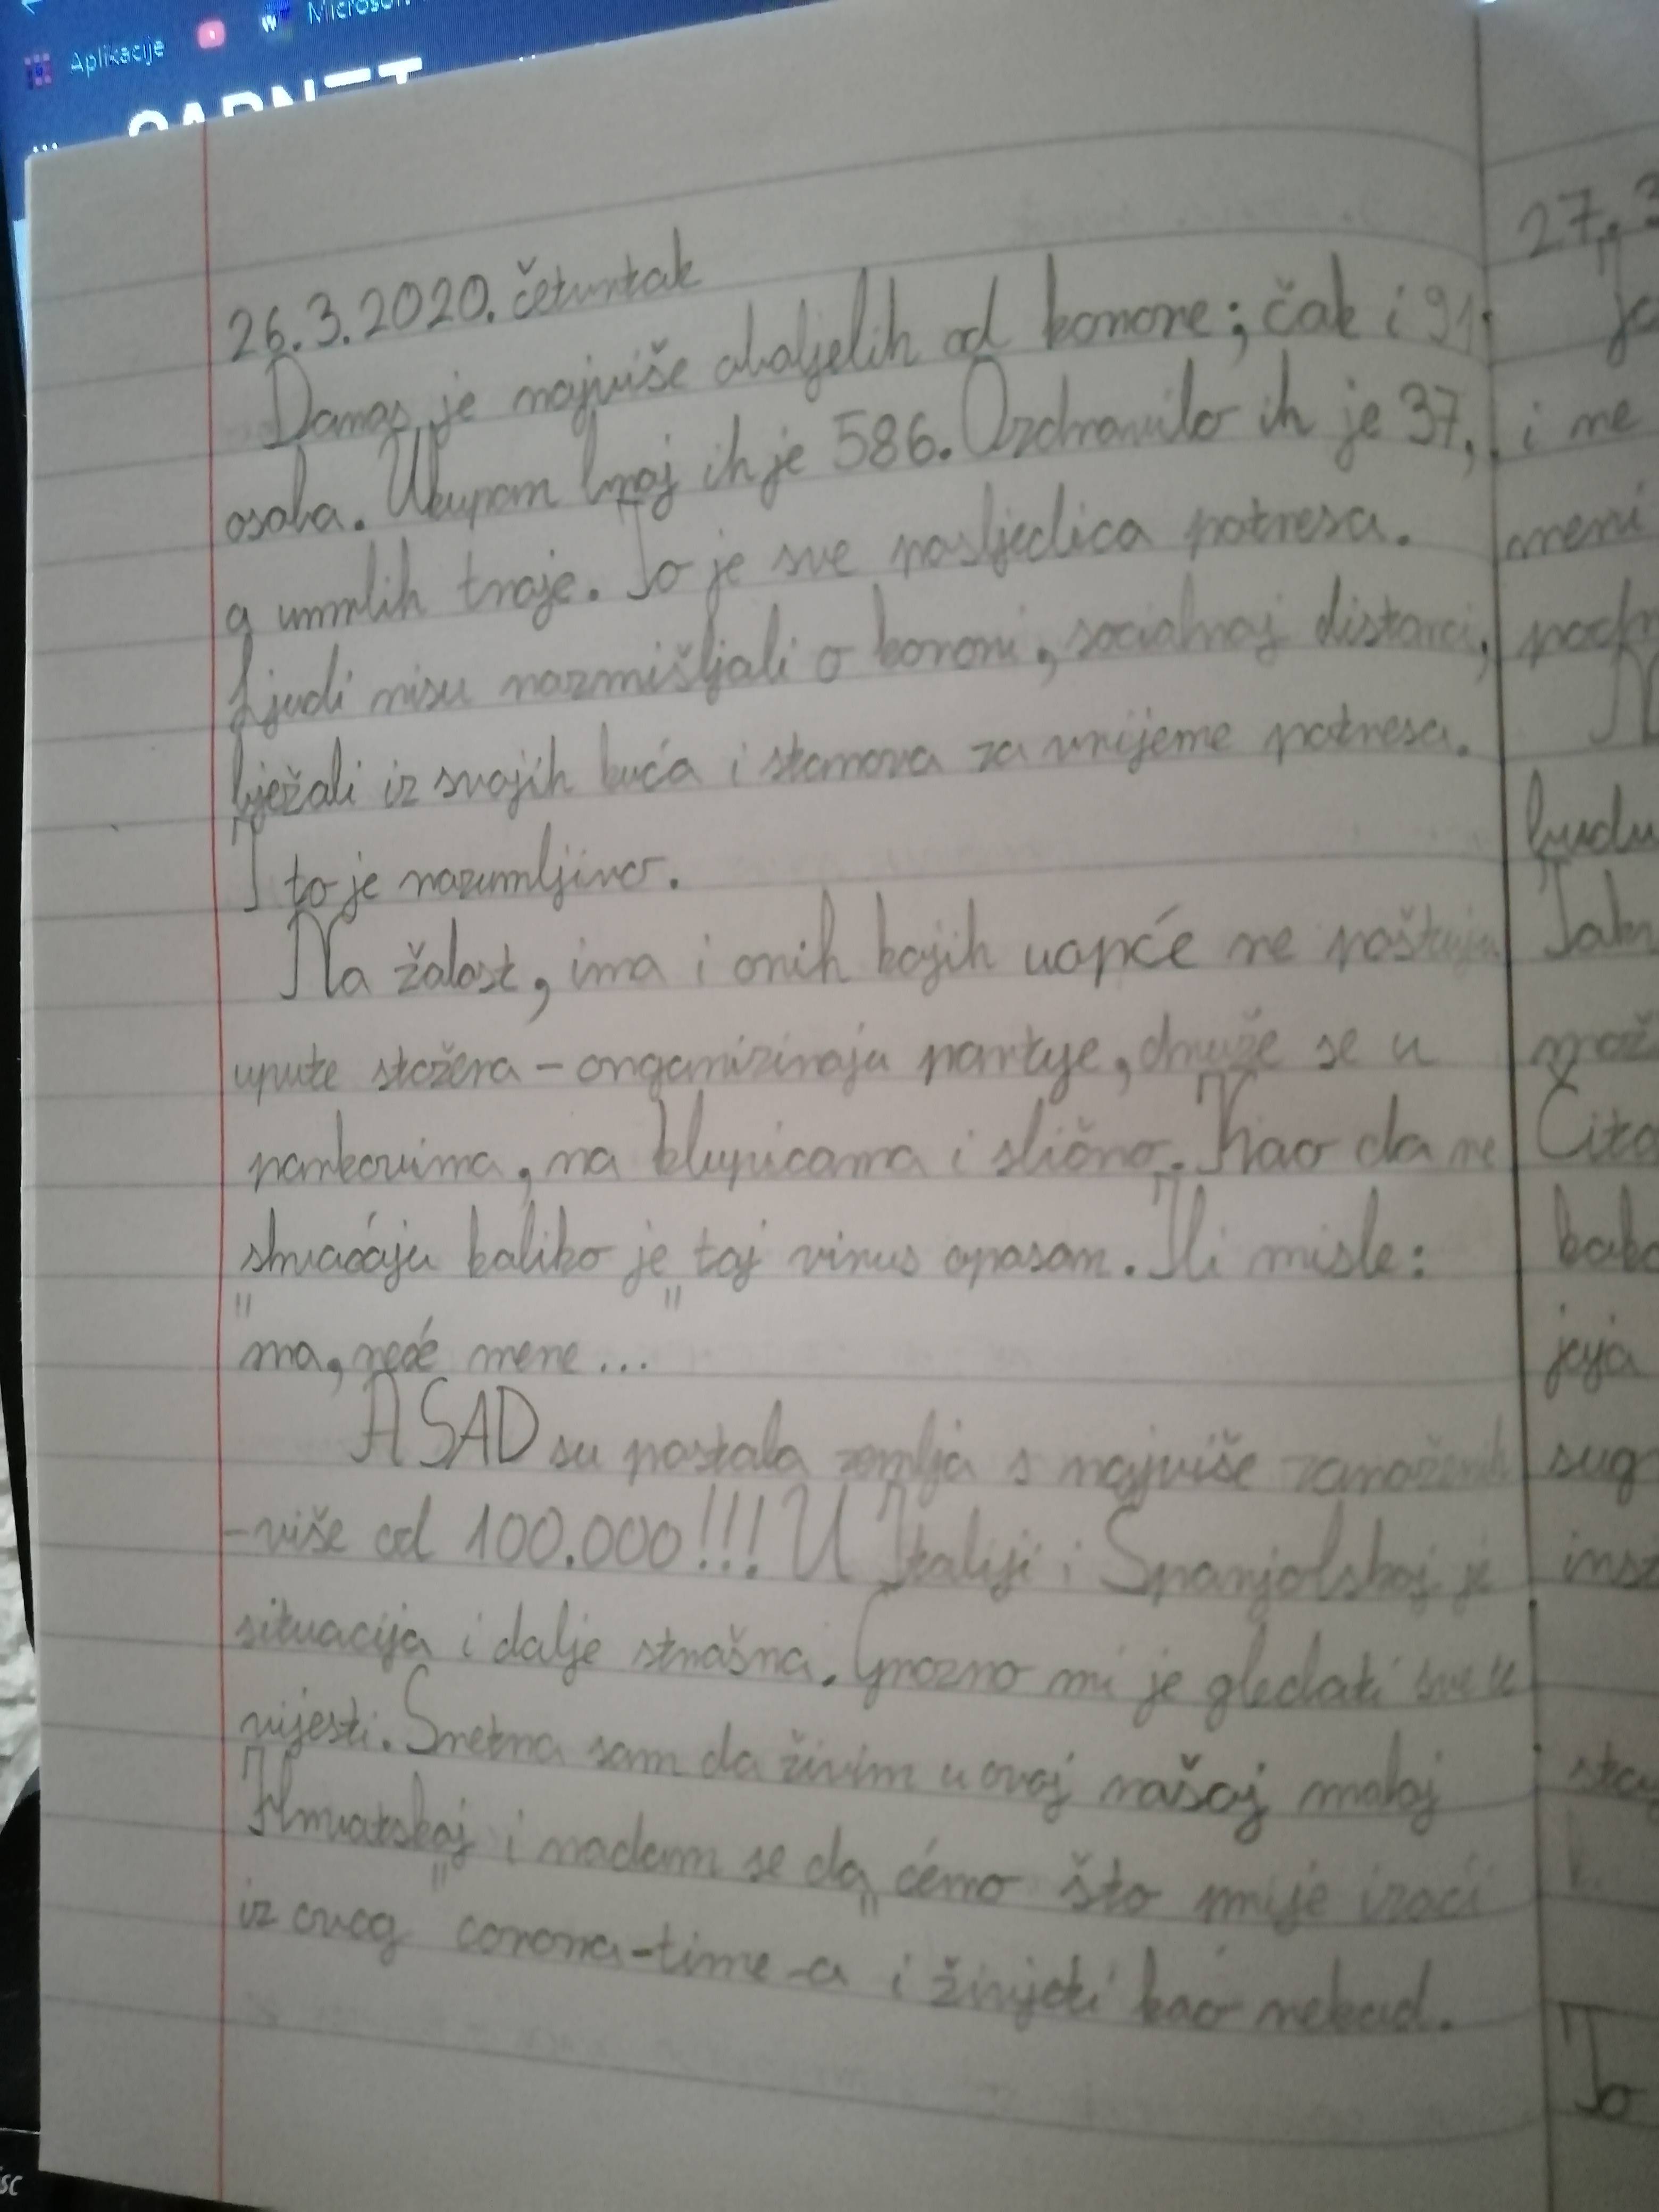 Aplikacije
Microsoft
CARNET
26.3.2020. četvrtak
Danas je najviše oboljelih od korone; čak i 91
osoba. Ukupan broj ih je 586. Ozdravilo ih je 37,
a umrlih troje. To je sve posljedica potresa.
Ljudi nisu razmišljali o koroni, socialnoj distanci,
bježali iz svojih kuća i stanova za vrijeme potresa.
I to je razumljivo.
Na žalost, ima i onih kojih uopće ne poštuju
upute stožera - organiziraju partye, druže se u
parkovima, na klupicama i slično. Kao da ne
shvaćaju koliko je taj virus opasan. Ili misle:
"ma, neće mene..."
A SAD su postala zemlja s najviše zaraženih
-više od 100.000!!! U Italiji i Španjolskoj je
situacija i dalje strašna. Grozno mi je gledati sve te
vijesti. Sretna sam da živim u ovoj našoj maloj
Hrvatskoj i nadam se da ćemo što prije izaći
iz ovog "corona-time-a" i živjeti kao nekad.
27.3
i ne
meni
ljudu
kako
To